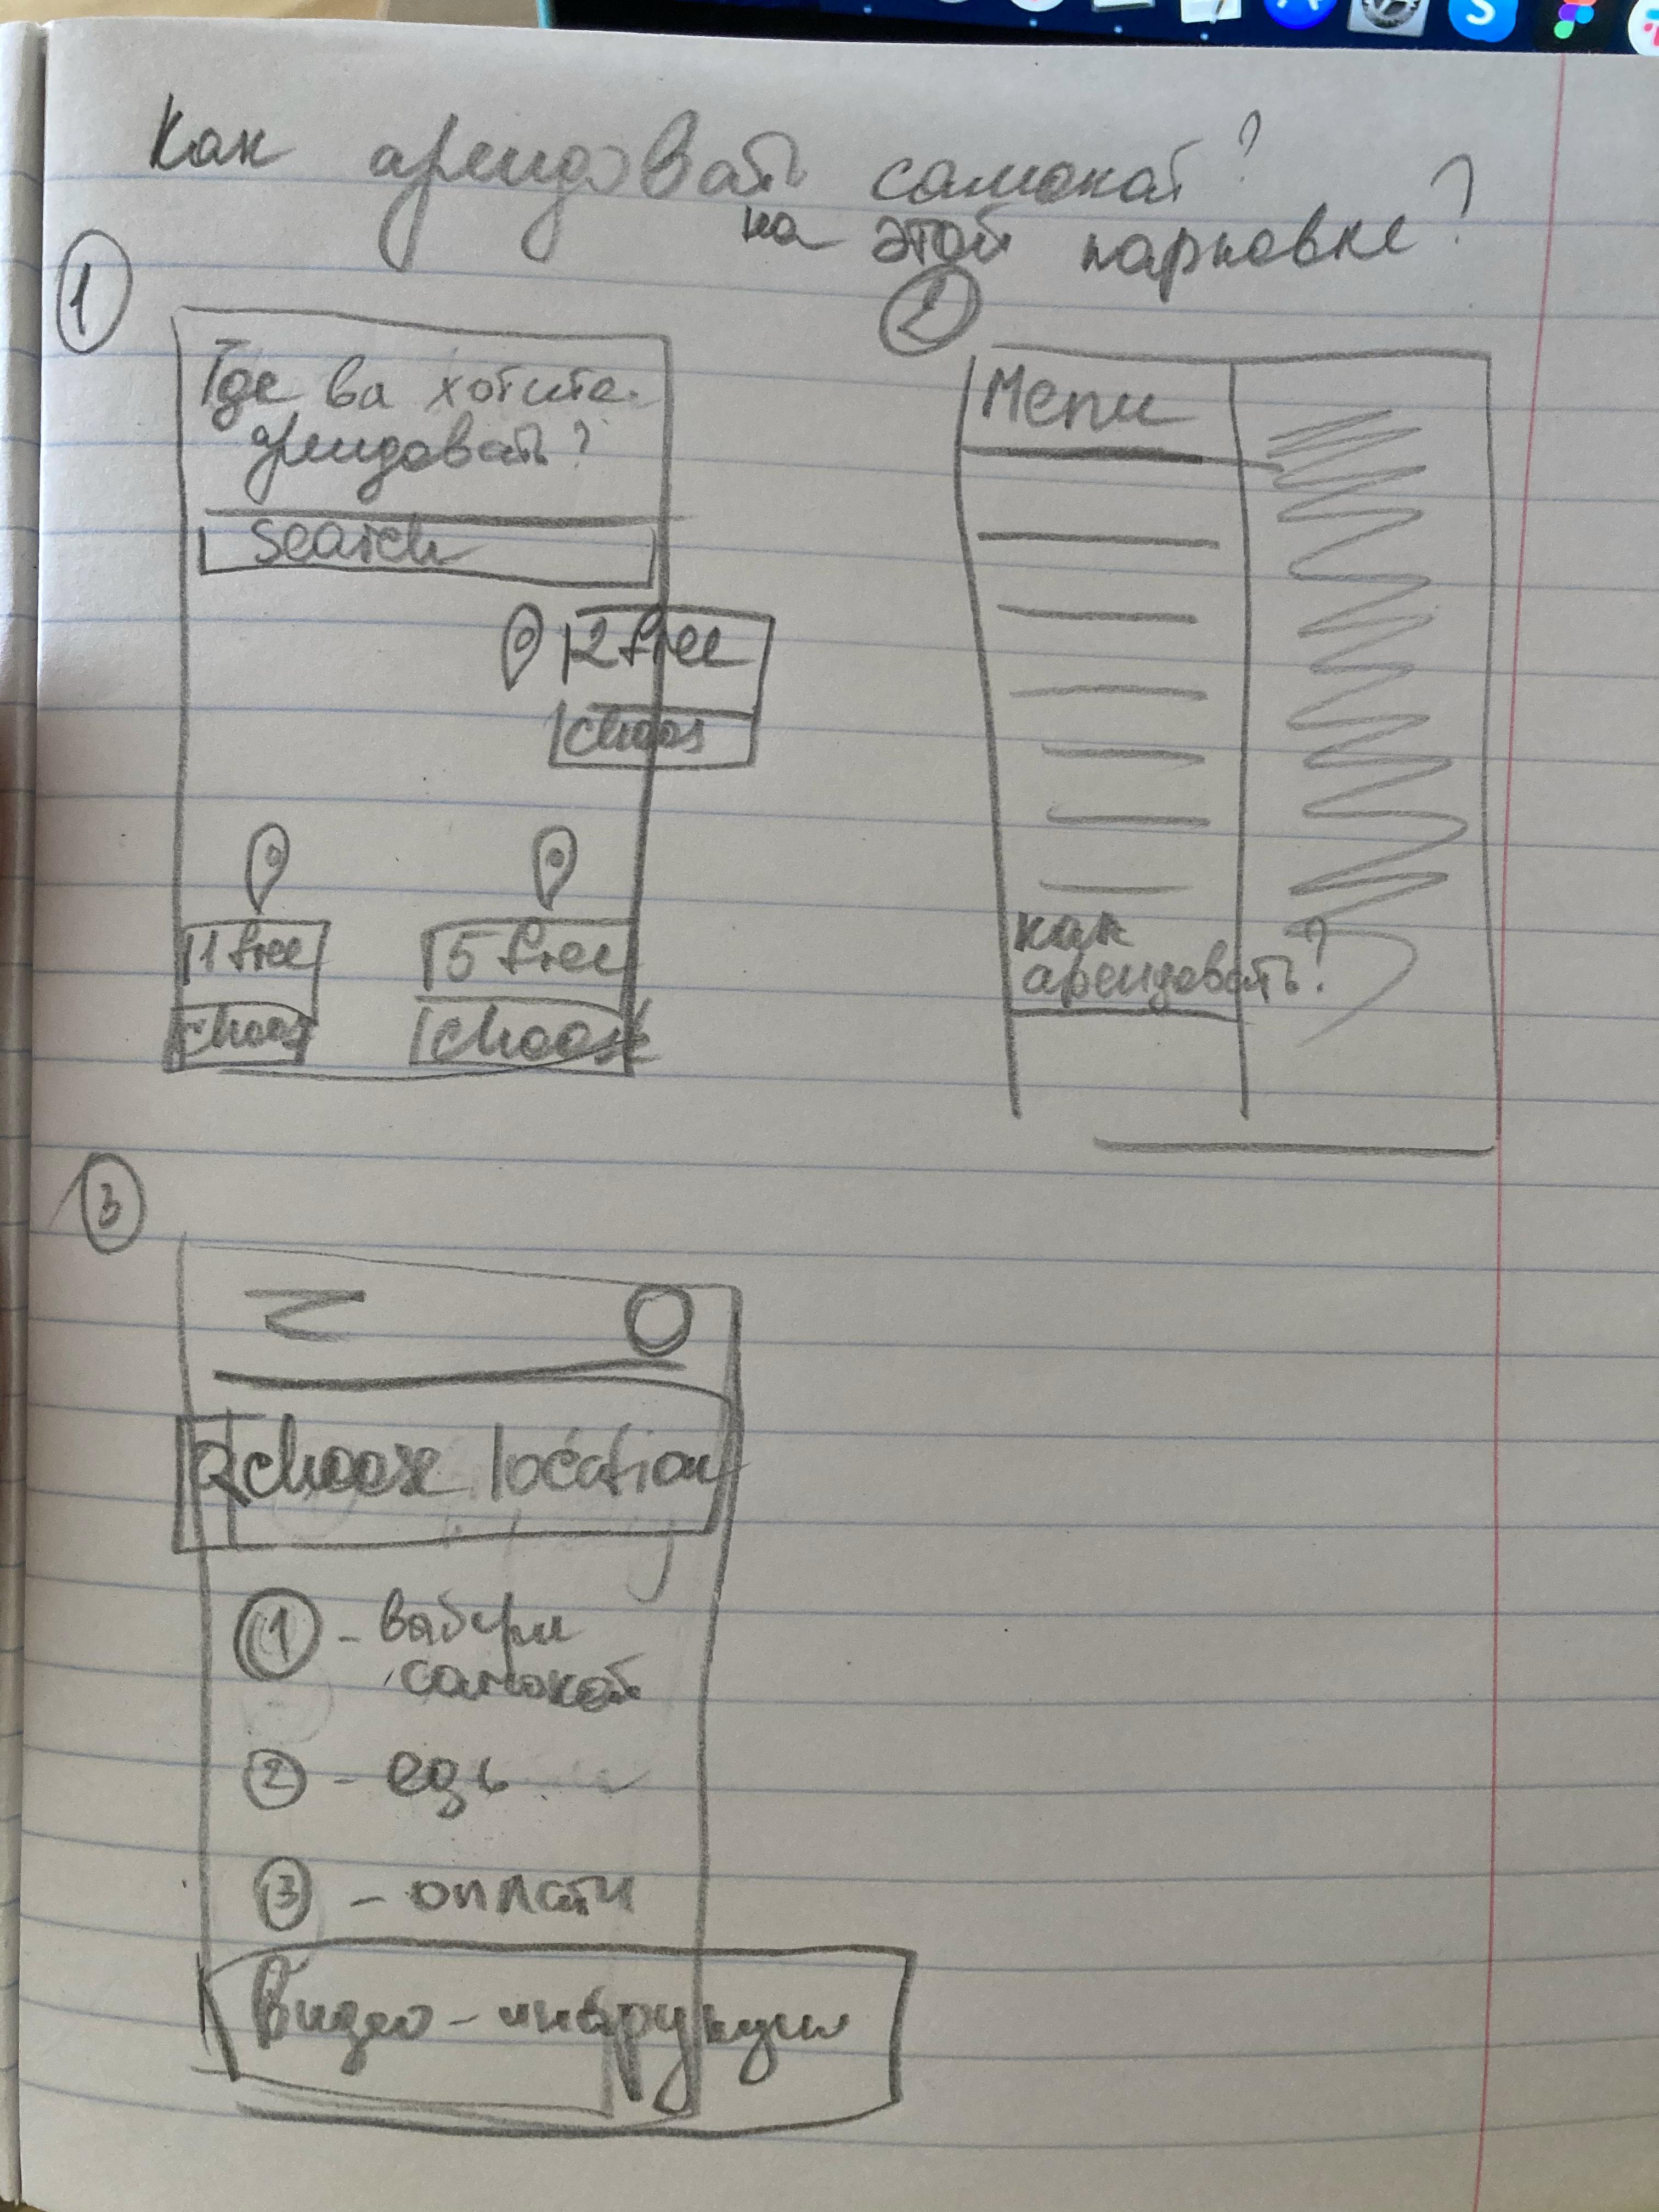 Как арендовать самокат?
на этой парковке?
1
Где ва хотите
арендовать?
Search
12 free
choos
11 free
choose
15 free
choose
2
Menu
как
арендовать?
3
choose location
1 - вабери
самокат
2 - едь
3 - оплати
Видео-инструкции